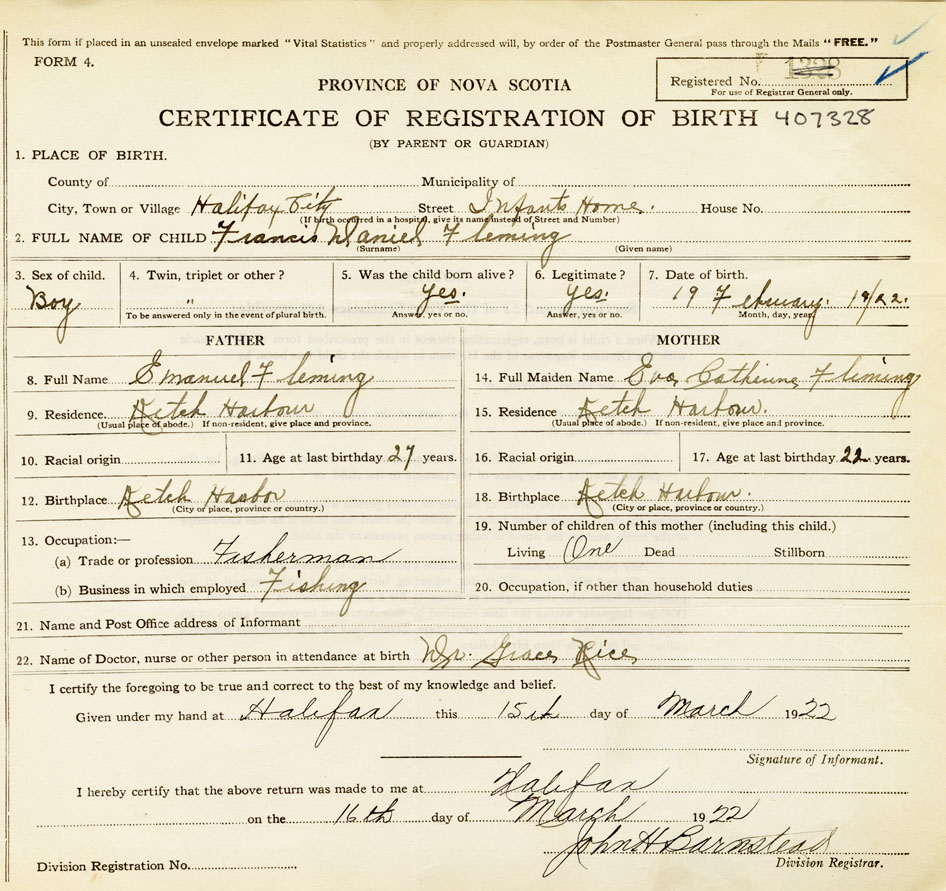 This form if placed in an unsealed envelope marked "Vital Statistics" and properly addressed will, by order of the Postmaster General pass through the Mails "FREE."
FORM 4.
PROVINCE OF NOVA SCOTIA
Registered No. 1328
For use of Registrar General only.
CERTIFICATE OF REGISTRATION OF BIRTH 407328
(BY PARENT OR GUARDIAN)
1. PLACE OF BIRTH.
County of Municipality of
City, Town or Village Halifax City Street Infants Home. House No.
(If birth occurred in a hospital, give its name instead of Street and Number)
2. FULL NAME OF CHILD Francis Daniel Fleming
(Surname) (Given name)
3. Sex of child. 4. Twin, triplet or other? 5. Was the child born alive? 6. Legitimate? 7. Date of birth.
Boy " yes. yes. 19 February. 19/22.
To be answered only in the event of plural birth. Answer, yes or no. Answer, yes or no. Month, day, year
FATHER MOTHER
8. Full Name Emanuel Fleming 14. Full Maiden Name Eva Catherine Fleming
9. Residence. Ketch Harbour 15. Residence Ketch Harbour.
(Usual place of abode.) If non-resident, give place and province. (Usual place of abode.) If non-resident, give place and province.
10. Racial origin 11. Age at last birthday 27 years. 16. Racial origin 17. Age at last birthday 22 years.
12. Birthplace Ketch Harbor 18. Birthplace Ketch Harbour.
(City or place, province or country.) (City or place, province or country.)
19. Number of children of this mother (including this child.)
13. Occupation:—
Living One Dead Stillborn
(a) Trade or profession Fisherman
(b) Business in which employed Fishing 20. Occupation, if other than household duties
21. Name and Post Office address of Informant
22. Name of Doctor, nurse or other person in attendance at birth Dr. Grace Rice
I certify the foregoing to be true and correct to the best of my knowledge and belief.
Given under my hand at Halifax this 15th day of March 1922
Signature of Informant.
I hereby certify that the above return was made to me at Halifax
on the 16th day of March 1922
John H Barnstead
Division Registration No. Division Registrar.